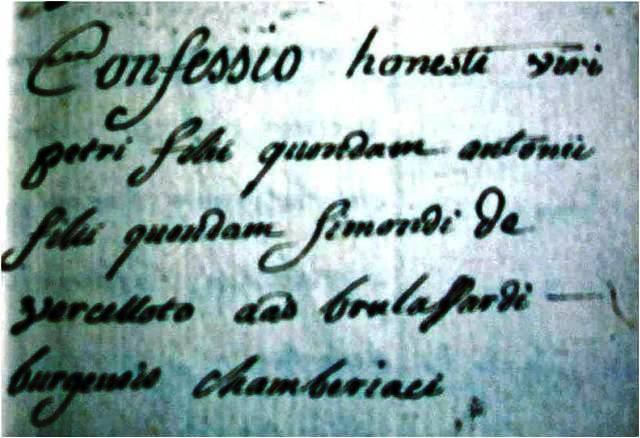 Confessio honesti viri
petri filii quondam antonii
filii quondam simondi de
vercelloto aād brulaffardi
burgensis chamberiaci